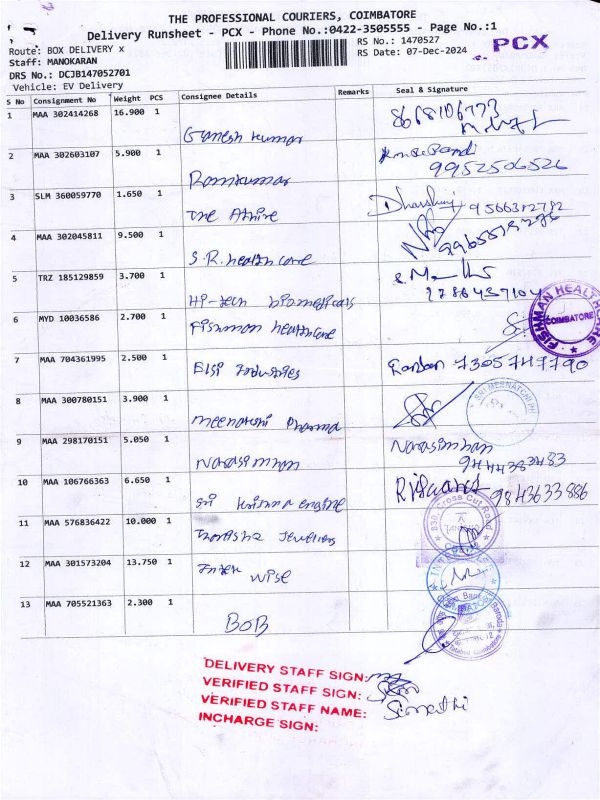 THE PROFESSIONAL COURIERS, COIMBATORE
Delivery Runsheet - PCX - Phone No.:0422-3505555 - Page No.:1
Route: BOX DELIVERY x
RS No.: 1470527
PCX
Staff: MANOKARAN
RS Date: 07-Dec-2024
DRS No.: DCJB147052701
Vehicle: EV Delivery
S No Consignment No Weight PCS Consignee Details Remarks Seal & Signature
1 MAA 302414268 16.900 1 Ganesh kumar
2 MAA 302603107 5.900 1 Ramkumar 9952506526
3 SLM 360059770 1.650 1 The Athire
4 MAA 302045811 9.500 1 S.R. health care
5 TRZ 185129859 3.700 1 Hi-tech biomedicals
6 MYD 10036586 2.700 1 Fishman healthcare
FISHMAN HEALTHCARE COIMBATORE
7 MAA 704361995 2.500 1 Elsi Industries 7305747790
8 MAA 300780151 3.900 1 meenakshi Pharma
9 MAA 298170151 5.050 1 Narasimhan Narasimhan
10 MAA 106766363 6.650 1 Sri krishna engine 9843633886
11 MAA 576836422 10.000 1 Jewellers
Cross Cut Road
12 MAA 301573204 13.750 1 Inter wise
COIMBATORE
13 MAA 705521363 2.300 1 BOB
DELIVERY STAFF SIGN:
VERIFIED STAFF SIGN:
VERIFIED STAFF NAME:
INCHARGE SIGN: